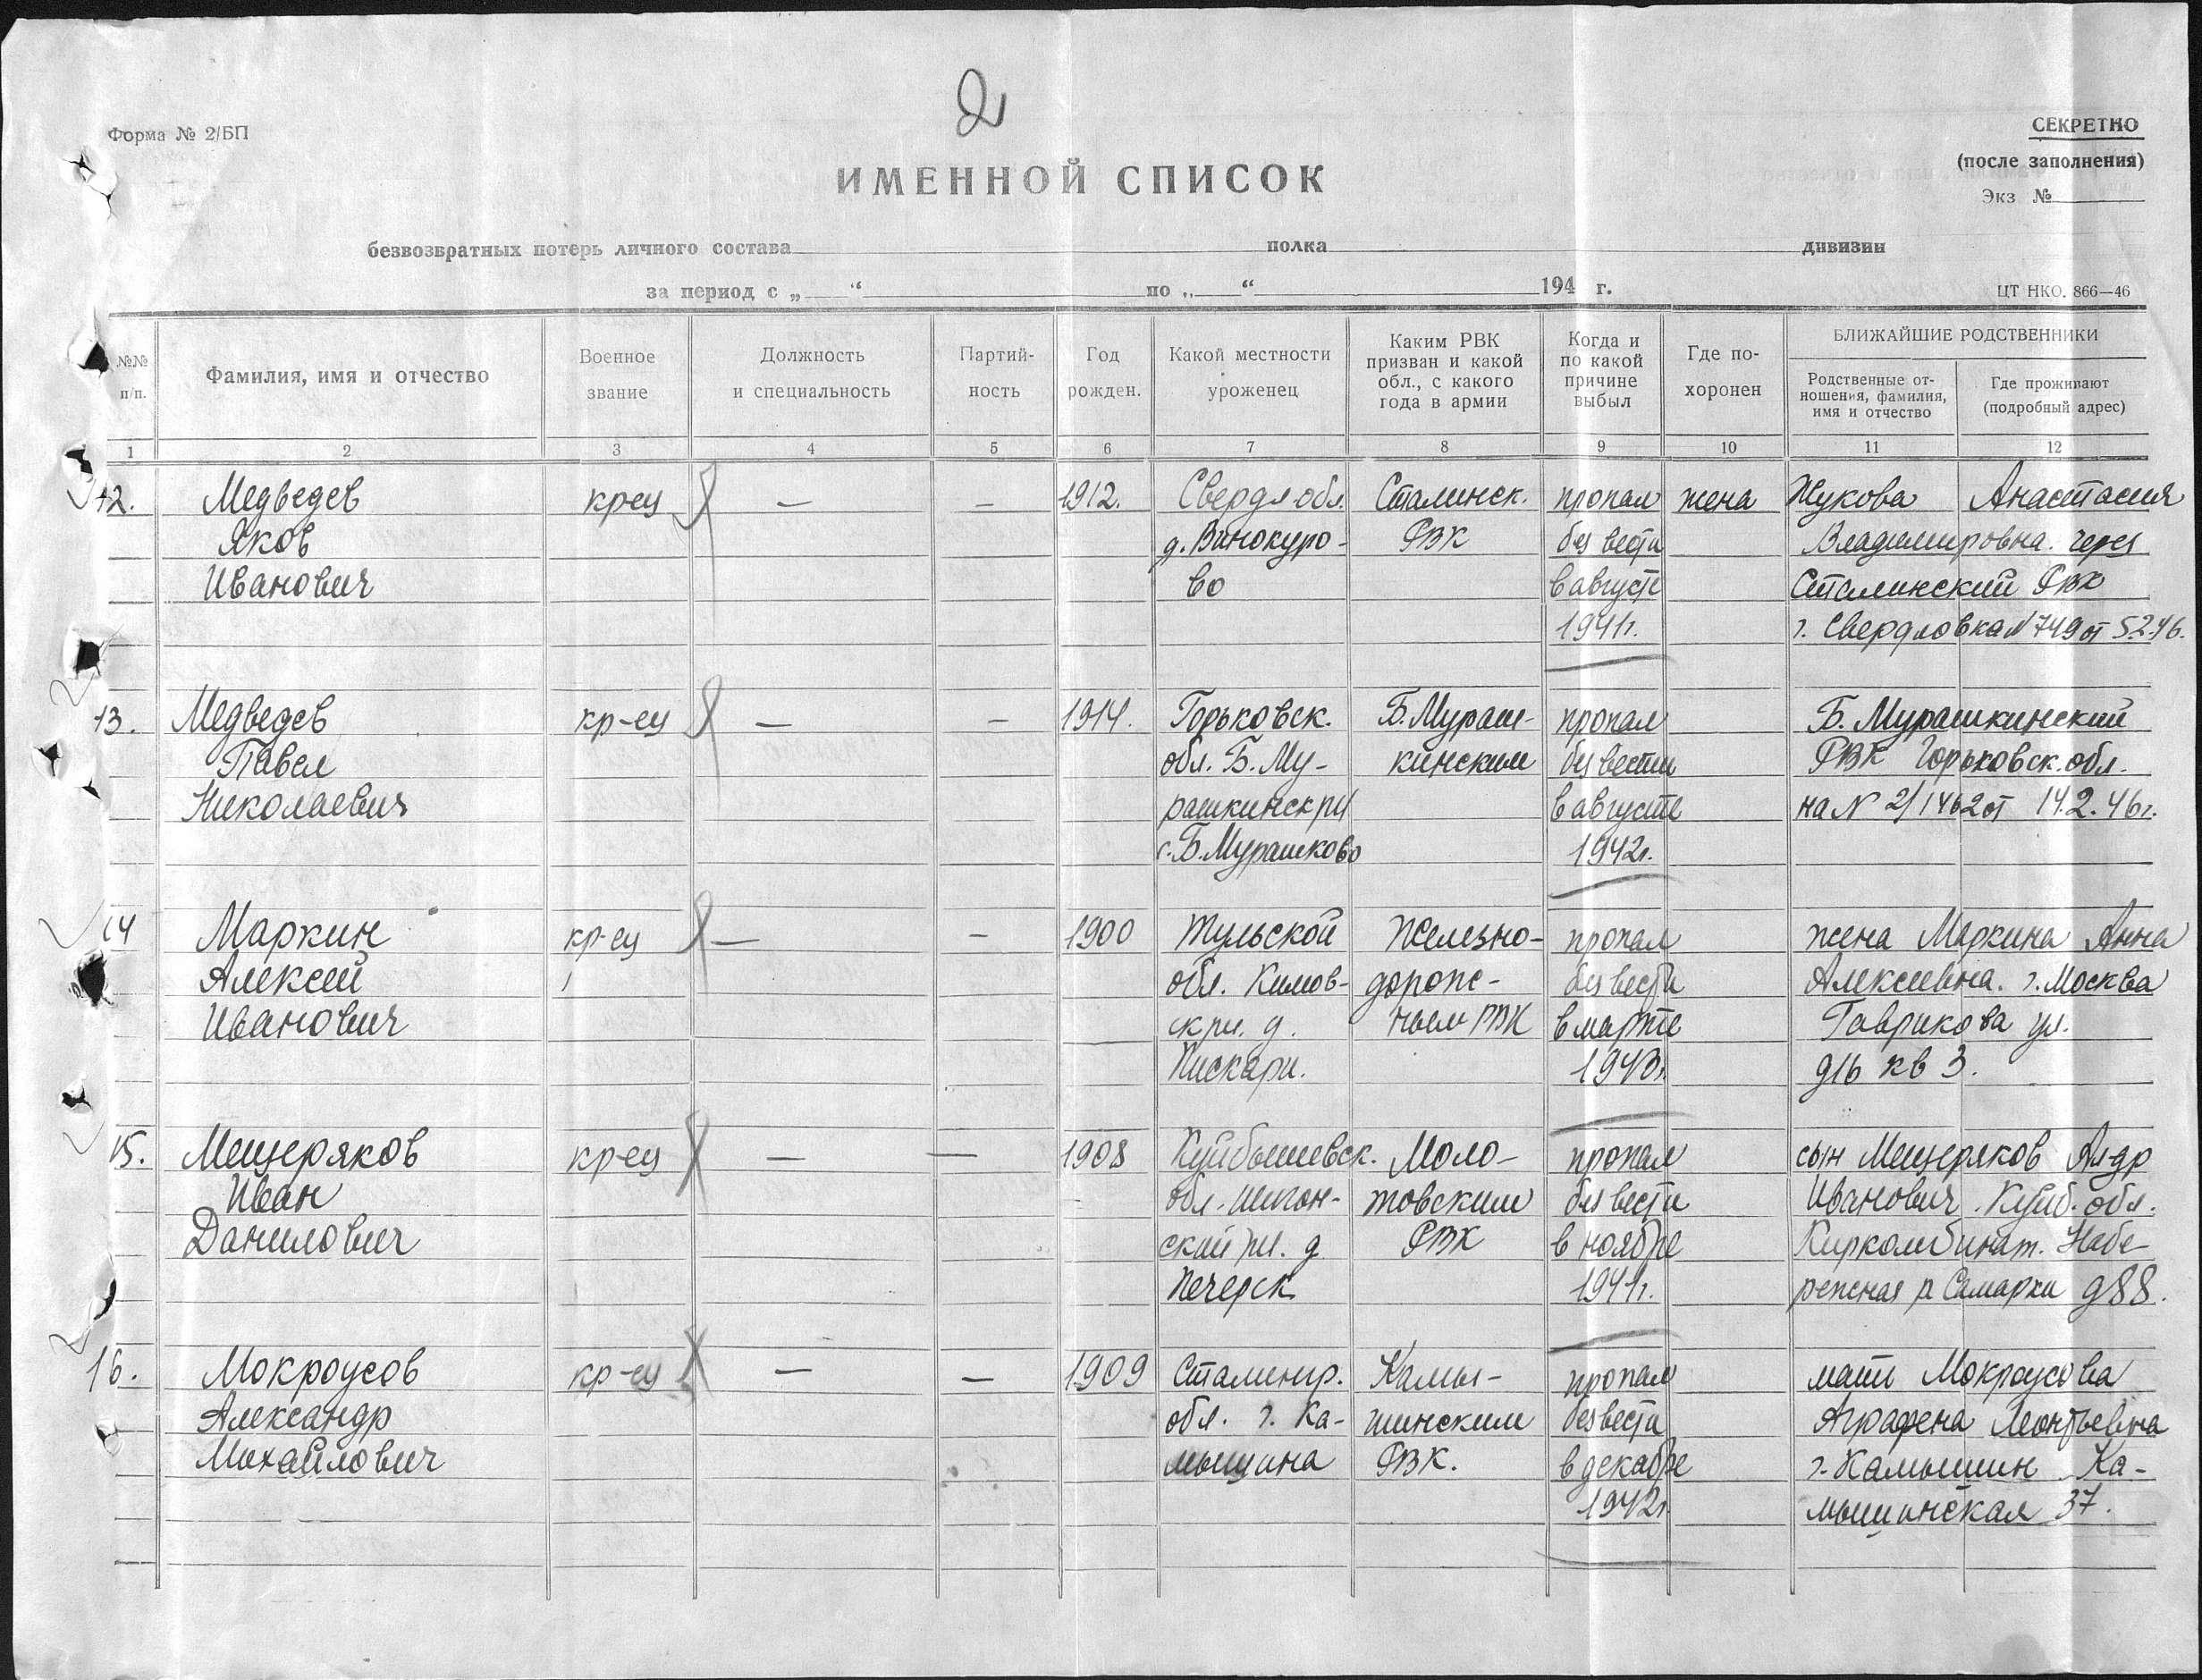 2
Форма № 2/БП
СЕКРЕТНО
(после заполнения)
Экз №
ИМЕННОЙ СПИСОК
безвозвратных потерь личного состава полка дивизии
за период с „ “ по „ “ 194 г.
ЦТ НКО. 866—46
№№ п/п.
Фамилия, имя и отчество
Военное звание
Должность и специальность
Партий-ность
Год рожден.
Какой местности уроженец
Каким РВК призван и какой обл., с какого года в армии
Когда и по какой причине выбыл
Где по-хоронен
БЛИЖАЙШИЕ РОДСТВЕННИКИ
Родственные от-ношения, фамилия, имя и отчество
Где проживают (подробный адрес)
1 2 3 4 5 6 7 8 9 10 11 12
12. Медведев кр-ец — — 1912. Свердл обл. Сталинск. пропал жена Жукова Анастасия
Яков д. Винокуро- РВК без вести Владимировна. через
Иванович во в августе Сталинский РВК
1941г. г. Свердловска N 749 от 5.2.46.
13. Медведев кр-ец — — 1914. Горьковск. Б. Мураш- пропал Б. Мурашкинский
Павел обл. Б. Му- кинским без вести РВК Горьковск. обл.
Николаевич рашкинск рн в августе на N 2/1462 от 14.2.46г.
с. Б. Мурашково 1942г.
14 Маркин кр-ец — — 1900 Тульской Железно- пропал жена Маркина Анна
Алексей обл. Кимов- дорож- без вести Алексеевна. г. Москва
Иванович ск рн. д. ным РВК в марте Гаврикова ул.
Пискари. 1943г. д16 кв 3.
15. Мещеряков кр-ец — — 1908 Куйбышевск. Моло- пропал сын Мещеряков Ал-др
Иван обл. Шигон- товским без вести Иванович. Куйб. обл.
Данилович ский рн. д РВК в ноябре Киркомбинат. Набе-
Печерск 1941г. режная р Самарки д88.
16. Мокроусов кр-ец — — 1909 Сталингр. Камы- пропал мать Мокроусова
Александр обл. г. Ка- шинским без вести Аграфена Леонтьевна
Михайлович мышина РВК. в декабре г. Камышин Ка-
1942г. мышинская 37.